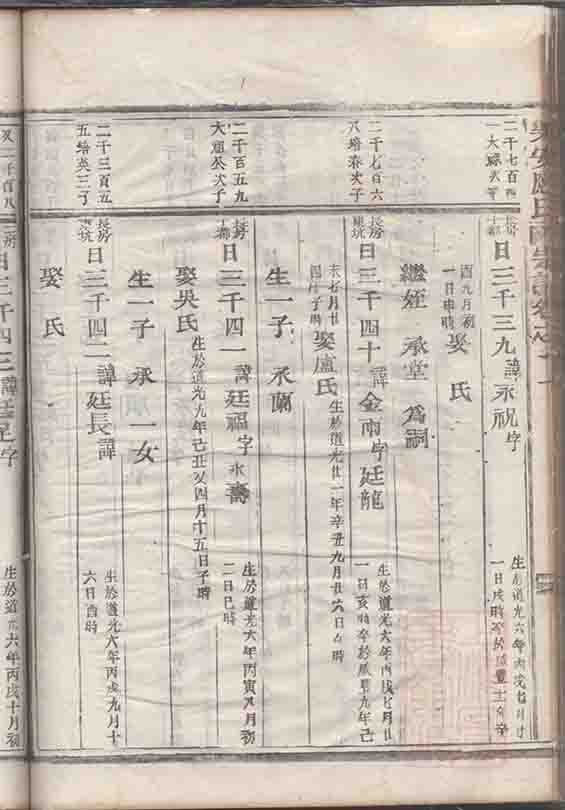 二千七百四
長房
日三千三九諱永祝字
生於道光六年丙戌
一日戌時卒於咸豐十
酉九月初
一日申時
娶 氏
繼姪承堂為嗣
二千七百六
八培春次子
長房
日三千四十諱金雨字廷龍
生於道光六年丙戌七月廿
一日亥時卒於咸豐九年己
未七月廿
四日子時
娶盧氏
生於道光廿一年辛丑九月廿六日 時
生一子 承蘭
二千百五九
日三千四一諱廷福字永壽
生於道光六年丙寅八月初
二日巳時
娶吳氏
生於道光九年己丑又四月十五日子時
生一子承 一女
二千三百五
五培英三子
長房
日三千四二諱廷長諱
生於道光六年丙戌九月十
六日酉時
娶 氏
日三千四三諱廷 字
生於道光六年丙戌十月初